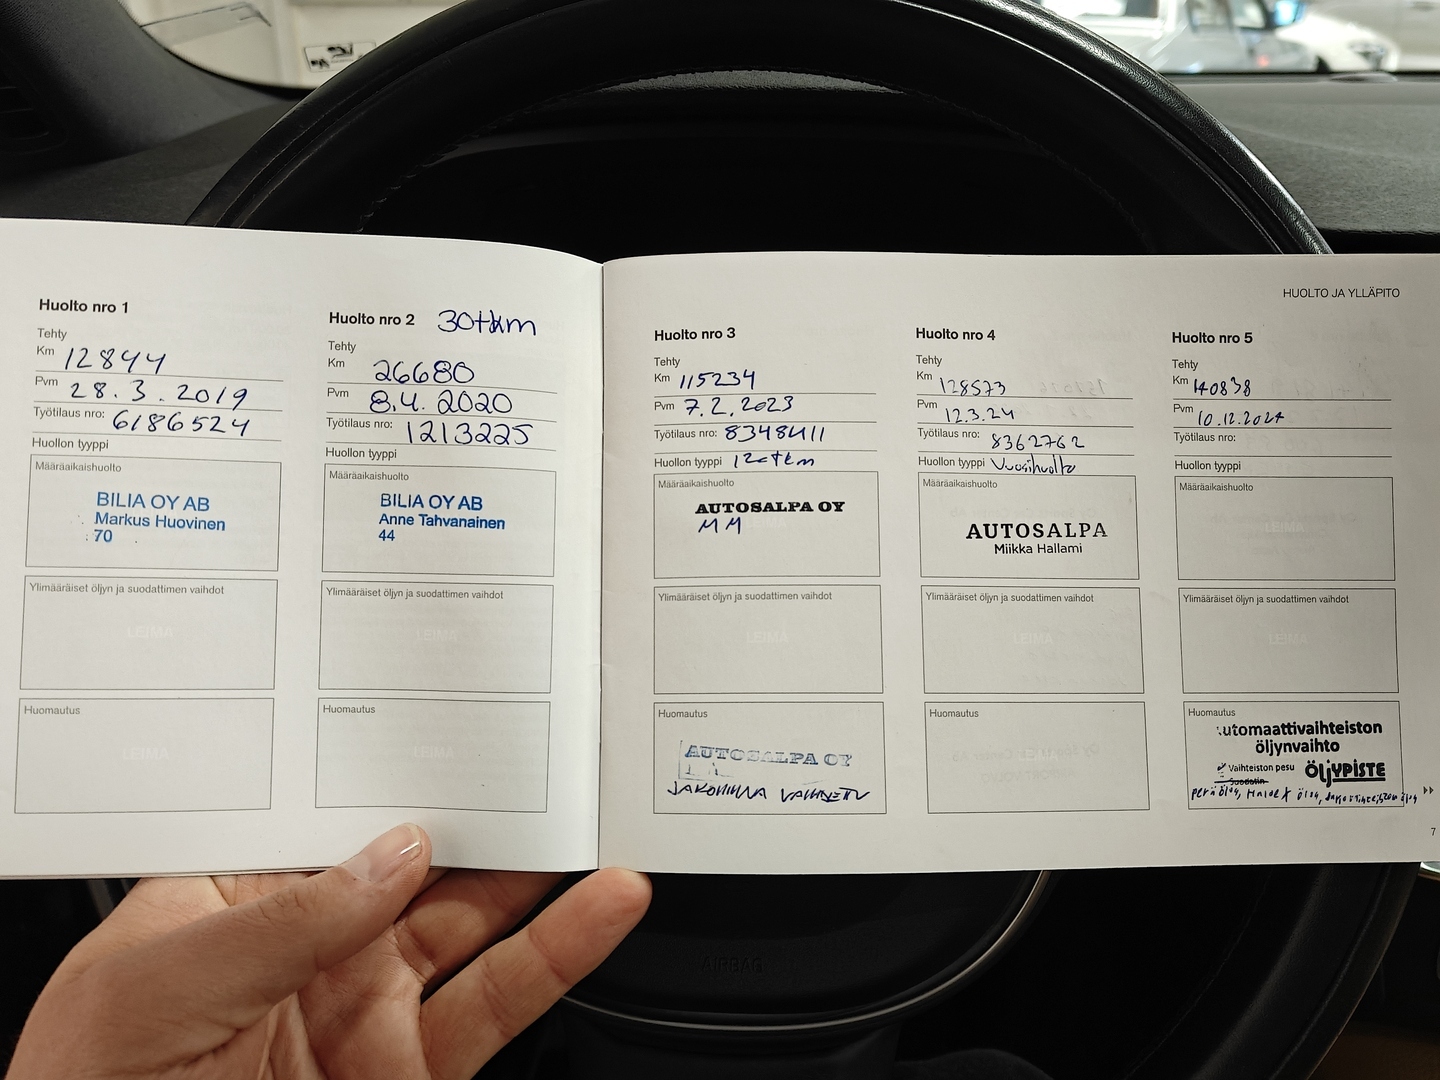 HUOLTO JA YLLÄPITO
Huolto nro 1
Tehty
Km 12844
Pvm 28.3.2019
Työtilaus nro: 6186524
Huollon tyyppi
Määräaikaishuolto
BILIA OY AB
Markus Huovinen
70
Ylimääräiset öljyn ja suodattimen vaihdot
LEIMA
Huomautus
LEIMA
Huolto nro 2 30tkm
Tehty
Km 26680
Pvm 8.4.2020
Työtilaus nro: 1213225
Huollon tyyppi
Määräaikaishuolto
BILIA OY AB
Anne Tahvanainen
44
Ylimääräiset öljyn ja suodattimen vaihdot
LEIMA
Huomautus
LEIMA
Huolto nro 3
Tehty
Km 115234
Pvm 7.2.2023
Työtilaus nro: 8348411
Huollon tyyppi 120tkm
Määräaikaishuolto
AUTOSALPA OY
MM
Ylimääräiset öljyn ja suodattimen vaihdot
LEIMA
Huomautus
AUTOSALPA OY
JAKOHIHNA VAIHDETTU
Huolto nro 4
Tehty
Km 128573
Pvm 12.3.24
Työtilaus nro: 8362762
Huollon tyyppi Vuosihuolto
Määräaikaishuolto
AUTOSALPA
Miikka Hallami
Ylimääräiset öljyn ja suodattimen vaihdot
LEIMA
Huomautus
Huolto nro 5
Tehty
Km 140838
Pvm 10.12.2024
Työtilaus nro:
Huollon tyyppi
Määräaikaishuolto
LEIMA
Ylimääräiset öljyn ja suodattimen vaihdot
LEIMA
Huomautus
utomaattivaihteiston
öljynvaihto
Vaihteiston pesu
Suodatin
ÖLJYPISTE
perä öljy, Haldex öljy,
7
AIRBAG